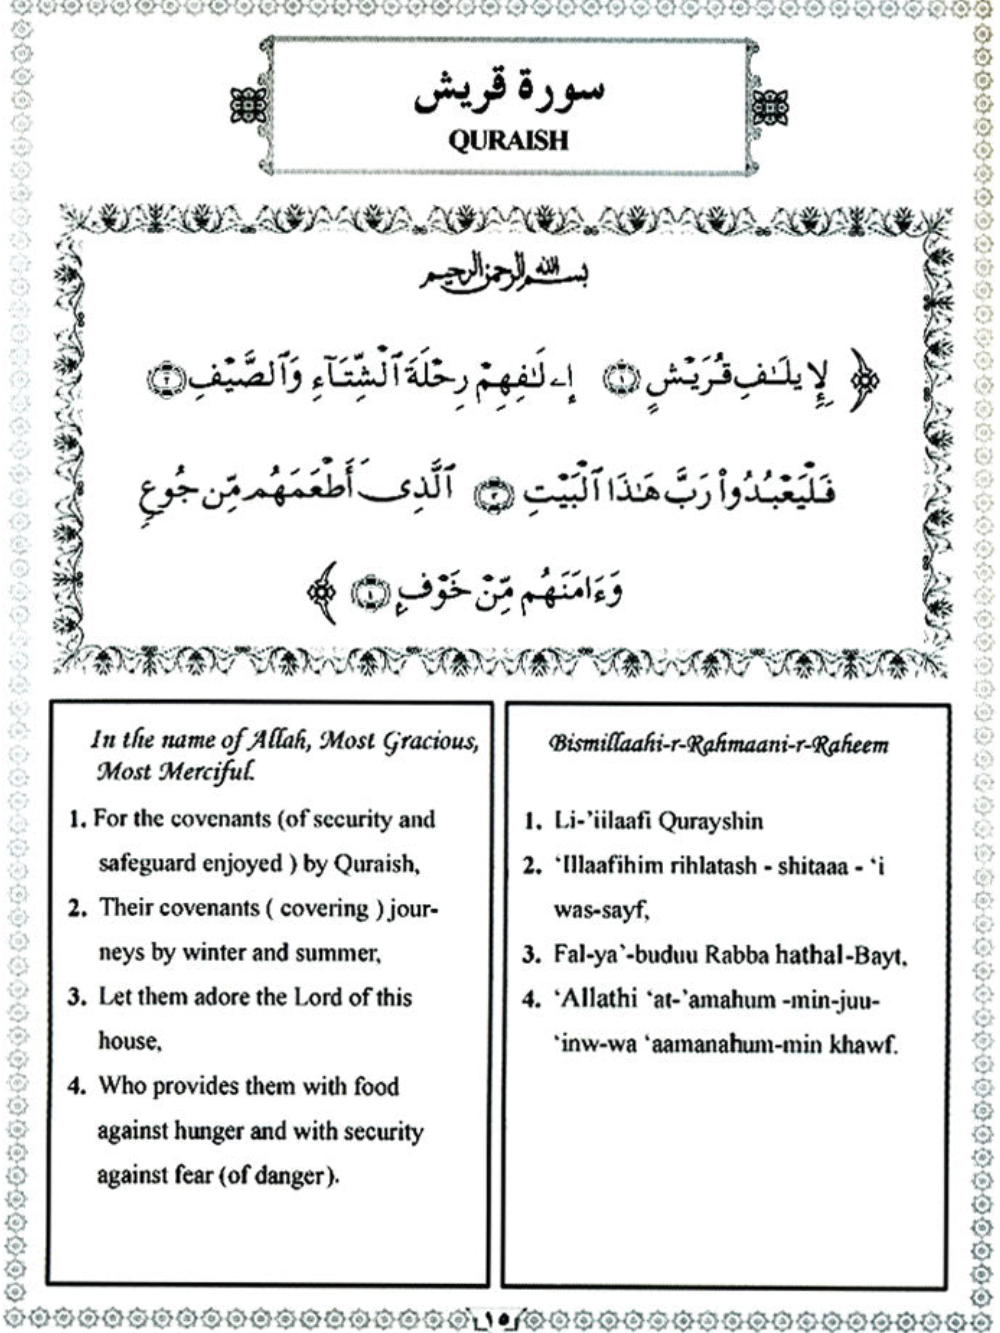 سورة قريش
QURAISH
بسم الله الرحمن الرحيم
﴿ لِإِيلَٰفِ قُرَيْشٍ ١ إِۦلَٰفِهِمْ رِحْلَةَ ٱلشِّتَآءِ وَٱلصَّيْفِ ٢
فَلْيَعْبُدُوا۟ رَبَّ هَٰذَا ٱلْبَيْتِ ٣ ٱلَّذِىٓ أَطْعَمَهُم مِّن جُوعٍ
وَءَامَنَهُم مِّنْ خَوْفٍۭ ٤ ﴾
In the name of Allah, Most Gracious,
Most Merciful.
1. For the covenants (of security and
safeguard enjoyed ) by Quraish,
2. Their covenants ( covering ) jour-
neys by winter and summer,
3. Let them adore the Lord of this
house,
4. Who provides them with food
against hunger and with security
against fear (of danger).
Bismillaahi-r-Rahmaani-r-Raheem
1. Li-'iilaafi Qurayshin
2. 'Illaafihim rihlatash - shitaaa - 'i
was-sayf,
3. Fal-ya'-buduu Rabba hathal-Bayt,
4. 'Allathi 'at-'amahum -min-juu-
'inw-wa 'aamanahum-min khawf.
١٥